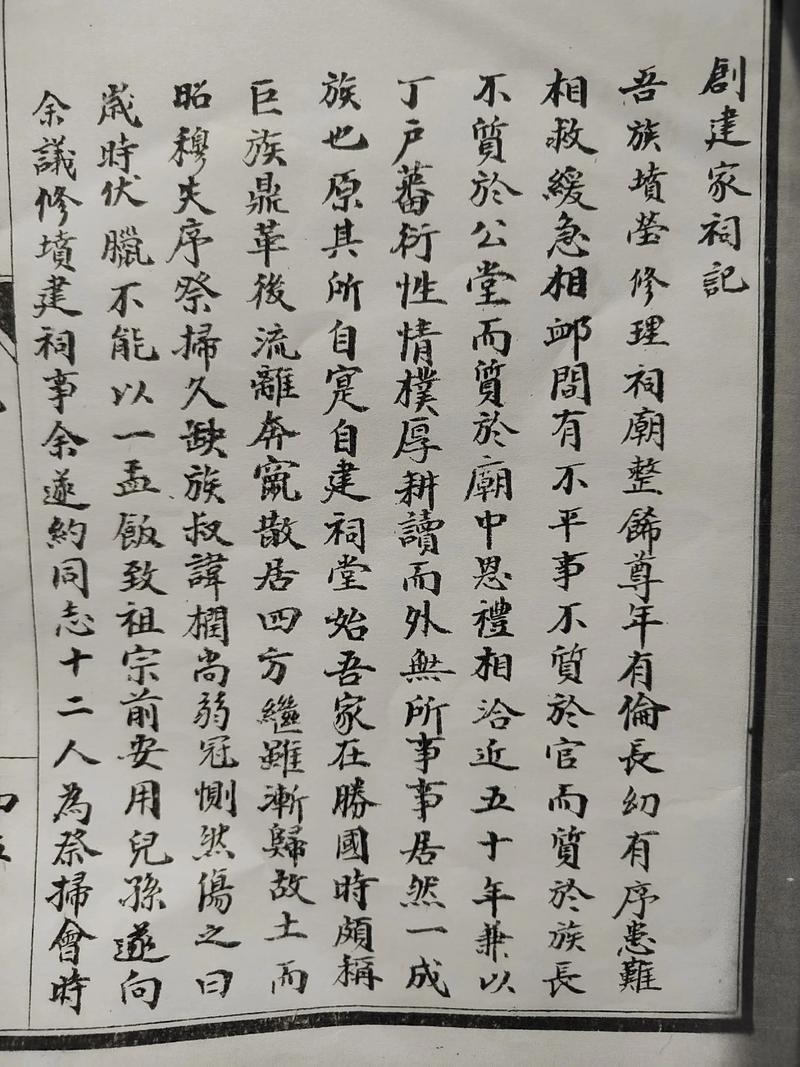 創建家祠記
吾族墳塋修理祠廟整飾尊年有倫長幼有序患難
相救緩急相卹間有不平事不質於官而質於族長
不質於公堂而質於廟中恩禮相洽近五十年兼以
丁戶蕃衍性情樸厚耕讀而外無所事事居然一成
族也原其所自寔自建祠堂始吾家在勝國時頗稱
巨族鼎革後流離奔竄散居四方繼雖漸歸故土而
昭穆失序祭掃久缺族叔諱欄尚弱冠惻然傷之曰
歲時伏臘不能以一盂飯致祖宗前安用兒孫遂向
余議修墳建祠事余遂約同志十二人為祭掃會時